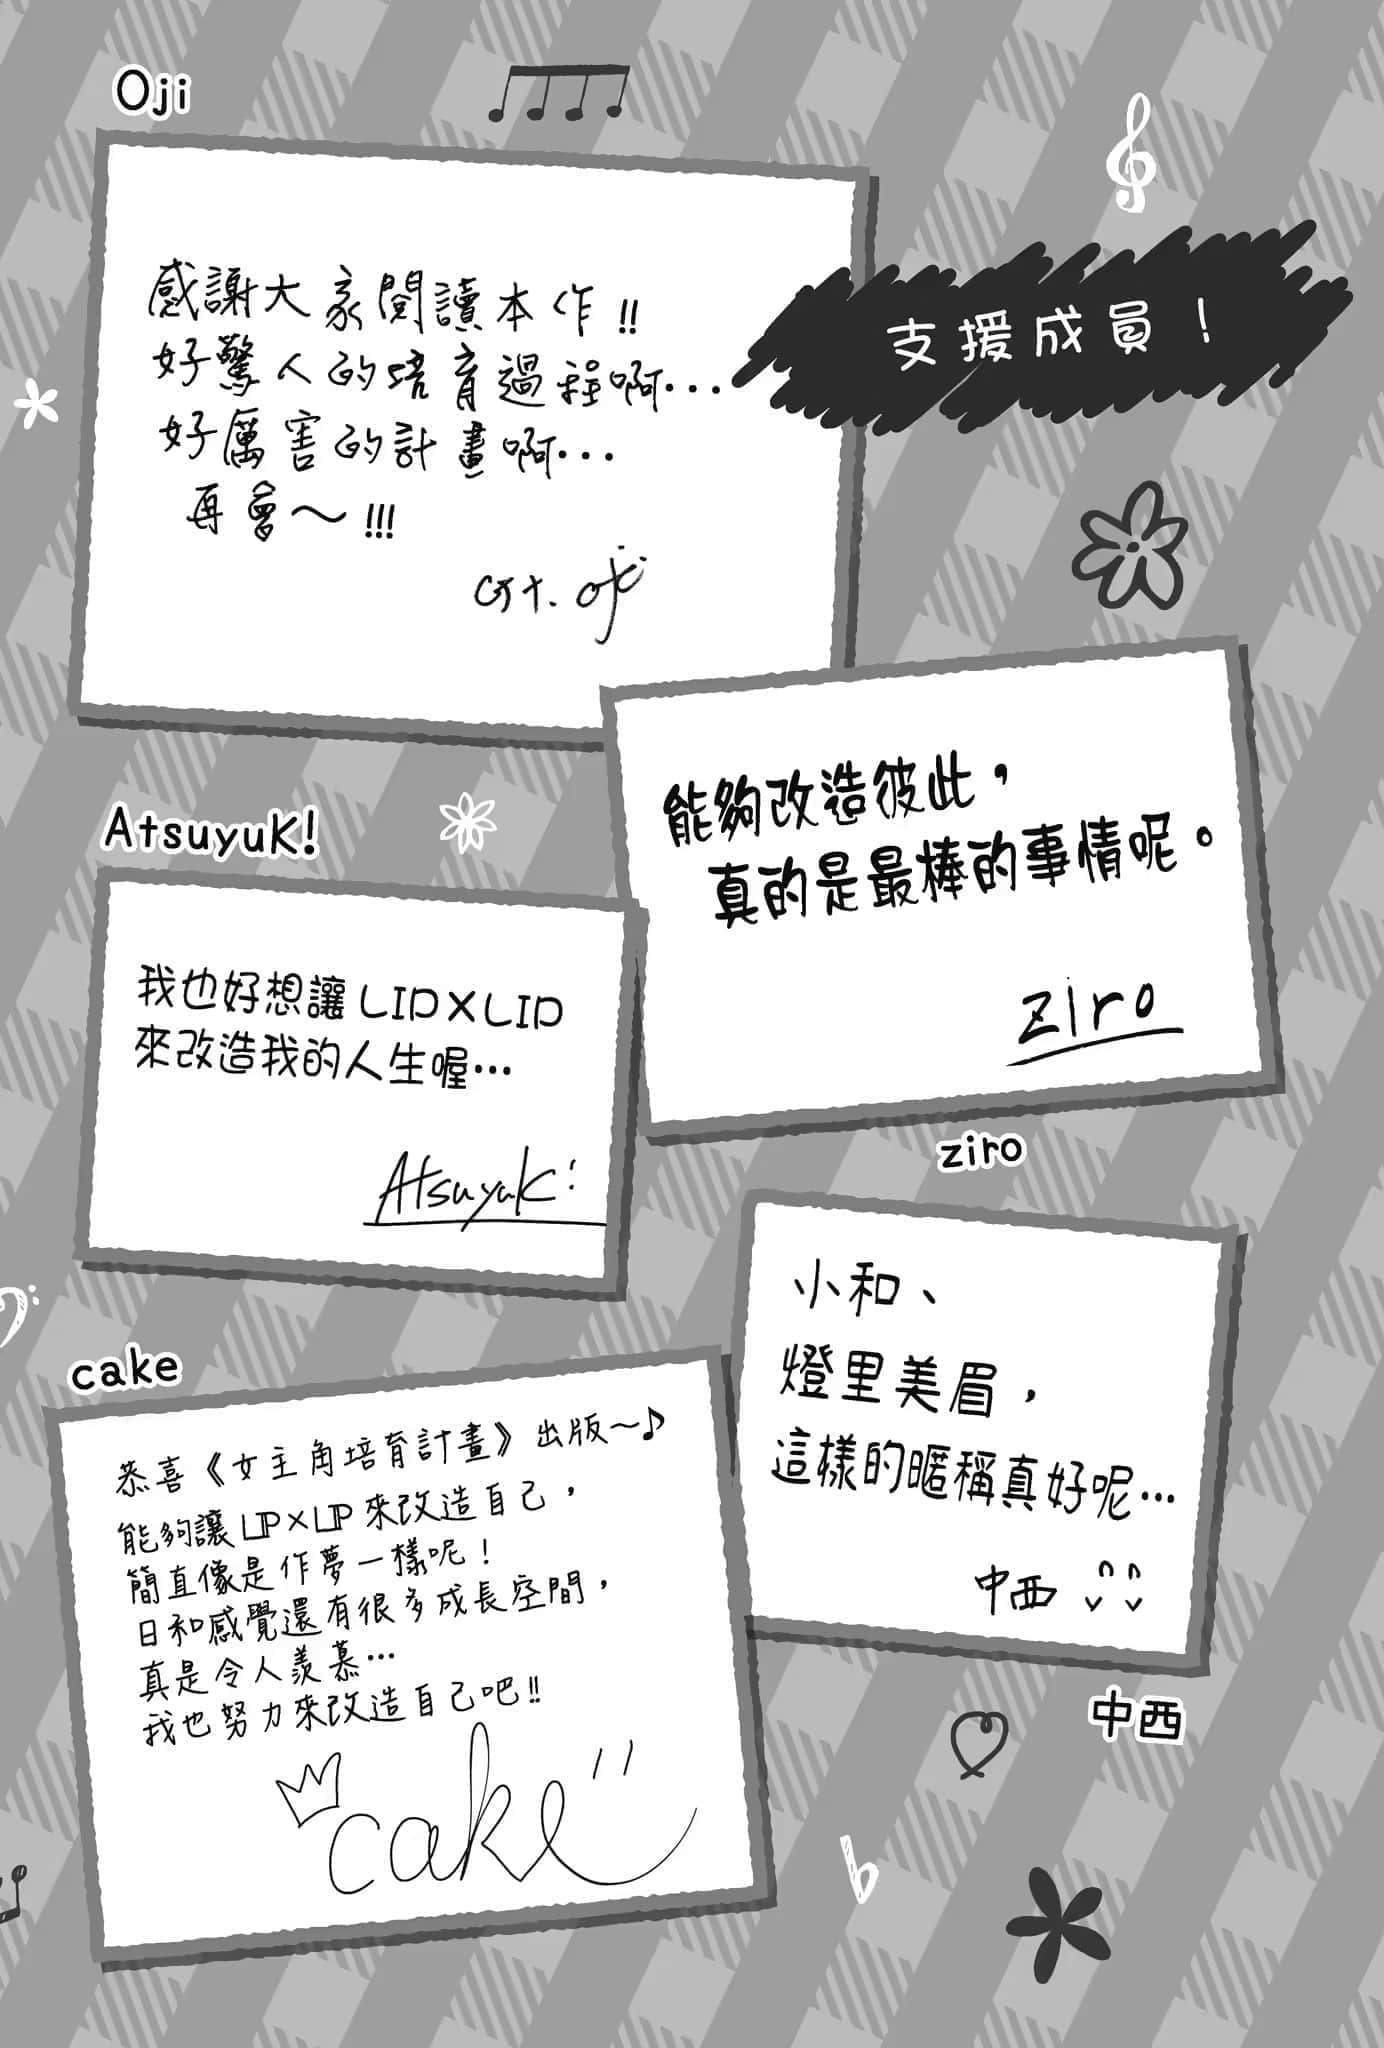 Oji
感謝大家閱讀本作!!
好驚人的培育過程啊…
好厲害的計畫啊…
再會～!!!
Gt. oji
支援成員！
能夠改造彼此，
真的是最棒的事情呢。
ziro
ziro
Atsuyuk!
我也好想讓LIP×LIP
來改造我的人生喔…
Atsuyuk!
小和、
燈里美眉，
這樣的暱稱真好呢…
中西
中西
cake
恭喜《女主角培育計畫》出版～♪
能夠讓LIP×LIP來改造自己，
簡直像是作夢一樣呢！
日和感覺還有很多成長空間，
真是令人羨慕…
我也努力來改造自己吧!!
cake